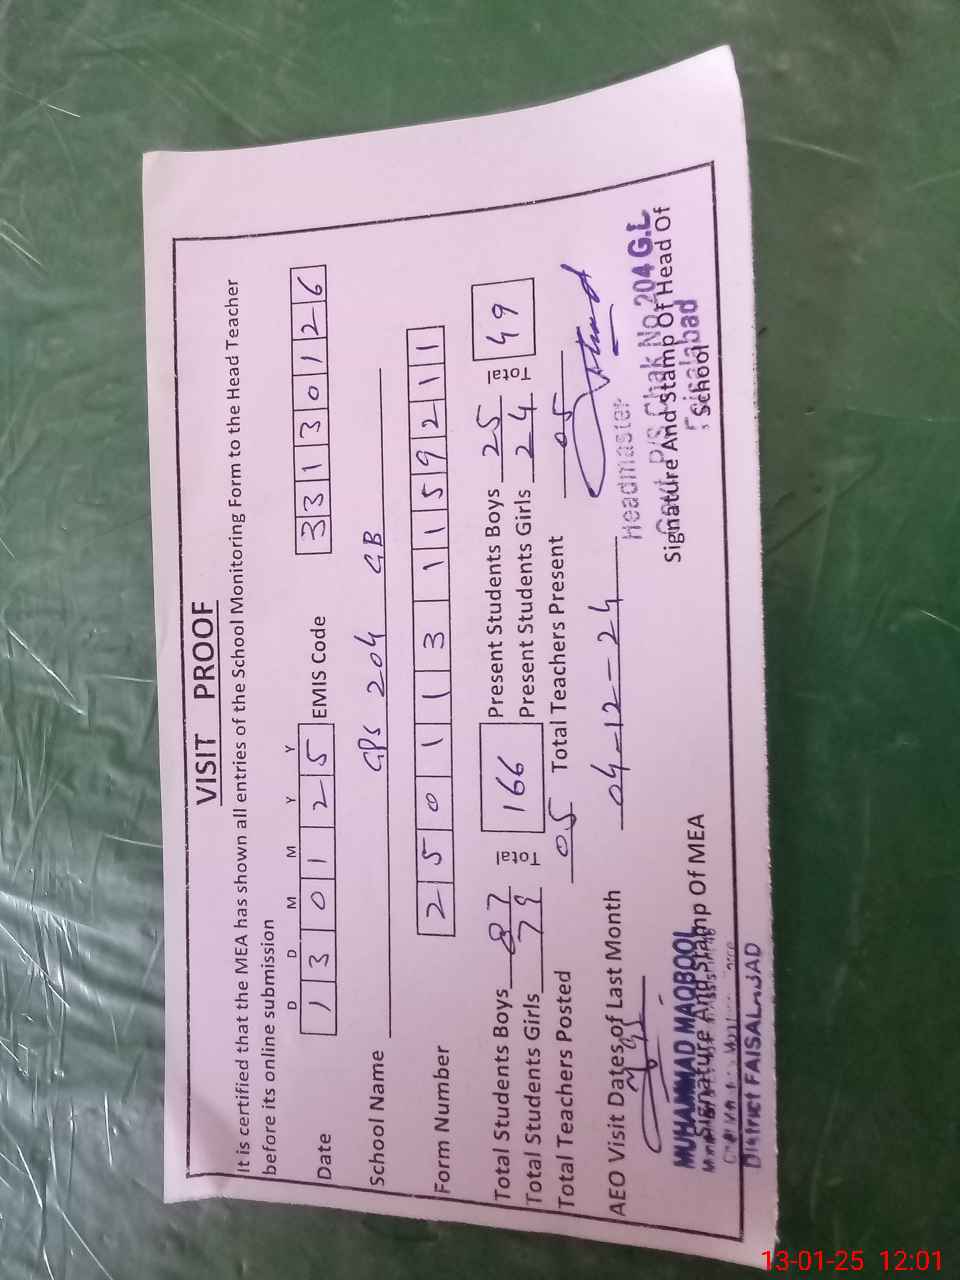 VISIT PROOF
It is certified that the MEA has shown all entries of the School Monitoring Form to the Head Teacher
before its online submission
D D M M Y Y
Date 1 3 0 1 2 5 EMIS Code 3 3 1 3 0 1 2 6
School Name GPS 204 GB
Form Number 2 5 0 1 1 3 1 1 5 9 2 1 1
Total Students Boys 87 Total 166 Present Students Boys 25 Total 49
Total Students Girls 79 Present Students Girls 24
Total Teachers Posted 05 Total Teachers Present 05
AEO Visit Dates of Last Month 04-12-24
Headmaster
Govt. P/S Chak No. 204 G.B
Faisalabad
Signature And Stamp Of Head Of
School
MUHAMMAD MAQBOOL
Signature And Stamp Of MEA
District FAISALABAD
13-01-25 12:01